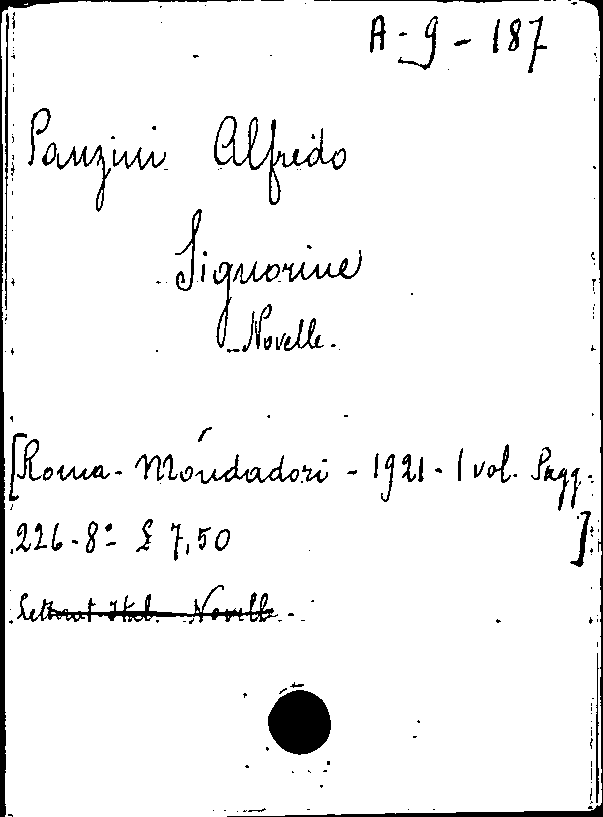 A-9-187
Panzini Alfredo
Signorine
Novelle.
[Roma - Mondadori - 1921 - 1 vol. Pagg.
226-8º £ 7,50 ]
Letterat. Ital. Novelle -